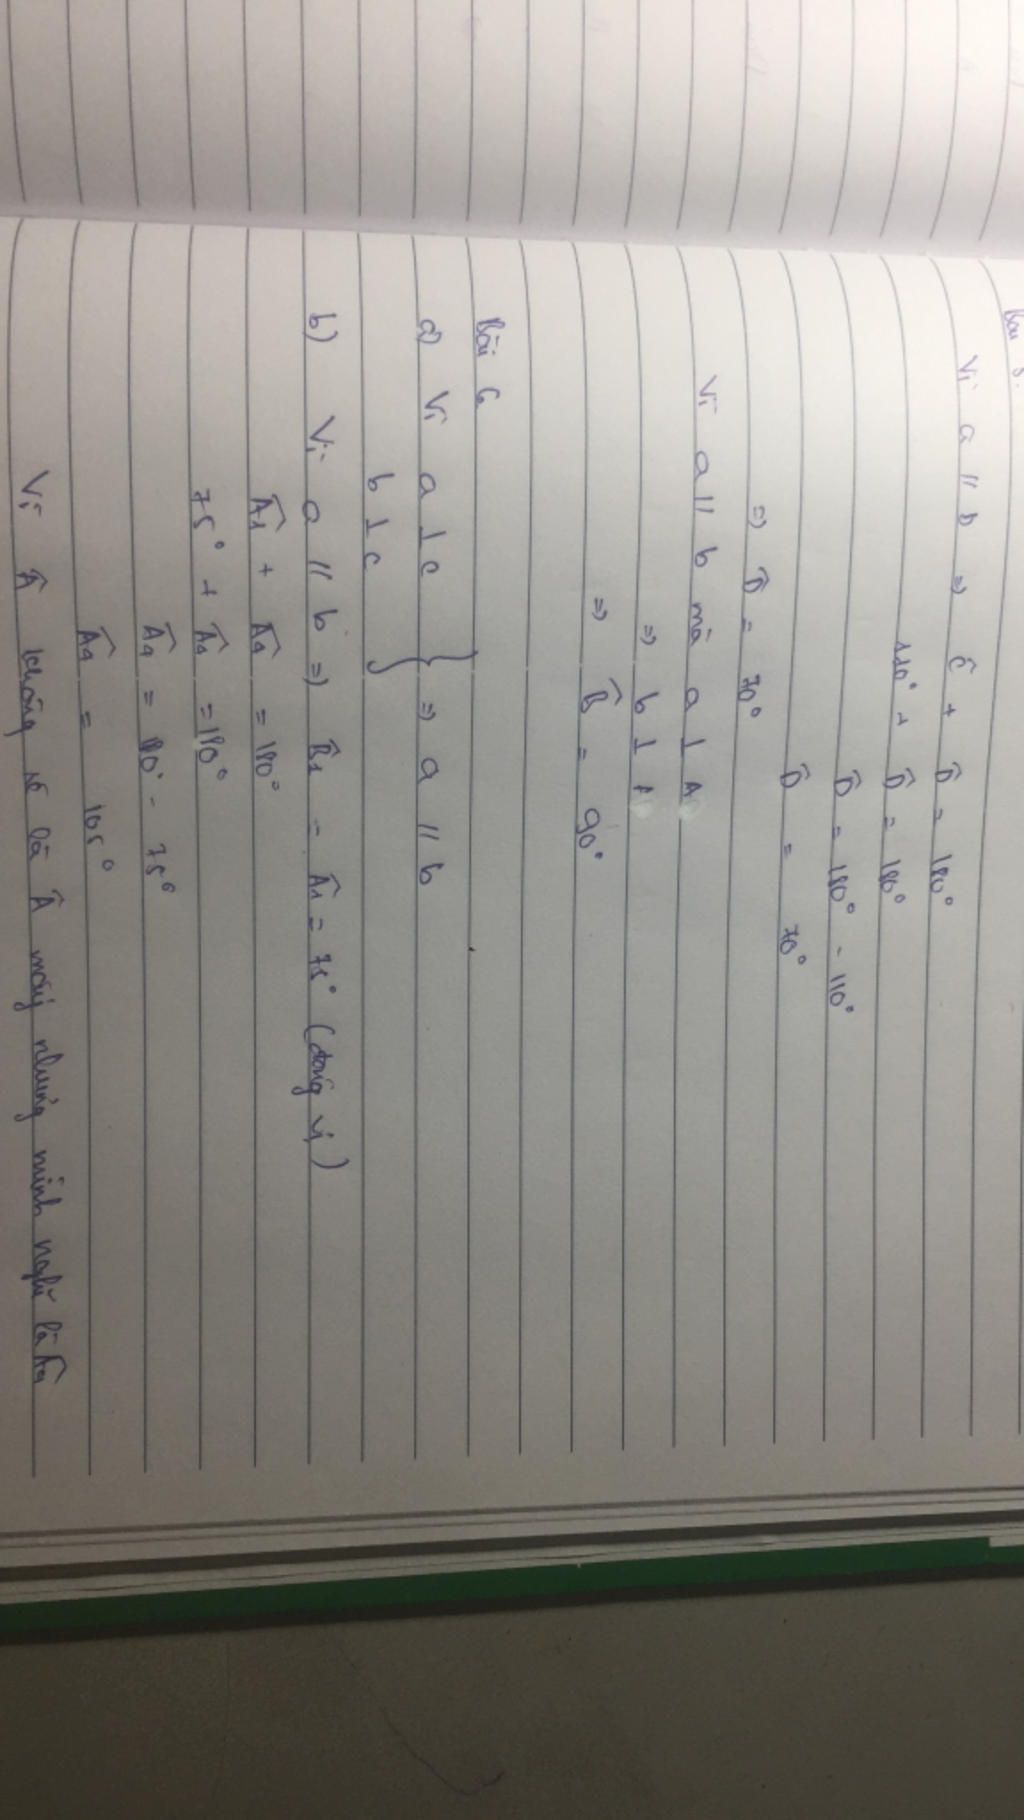 Bài 5.
Vì a // b ⇒ Ĉ + D̂ = 180°
110° + D̂ = 180°
D̂ = 180° - 110°
D̂ = 70°
⇒ D̂ = 70°
Vì a // b mà a ⊥ A
⇒ b ⊥ A
⇒ B̂ = 90°
Bài 6
a) Vì a ⊥ c
b ⊥ c } ⇒ a // b
b) Vì a // b ⇒ B̂1 = Â1 = 75° (đồng vị)
Â1 + Â4 = 180°
75° + Â4 = 180°
Â4 = 180° - 75°
Â4 = 105°
Vì Â không rõ là Â mấy nhưng mình nghĩ là Â4